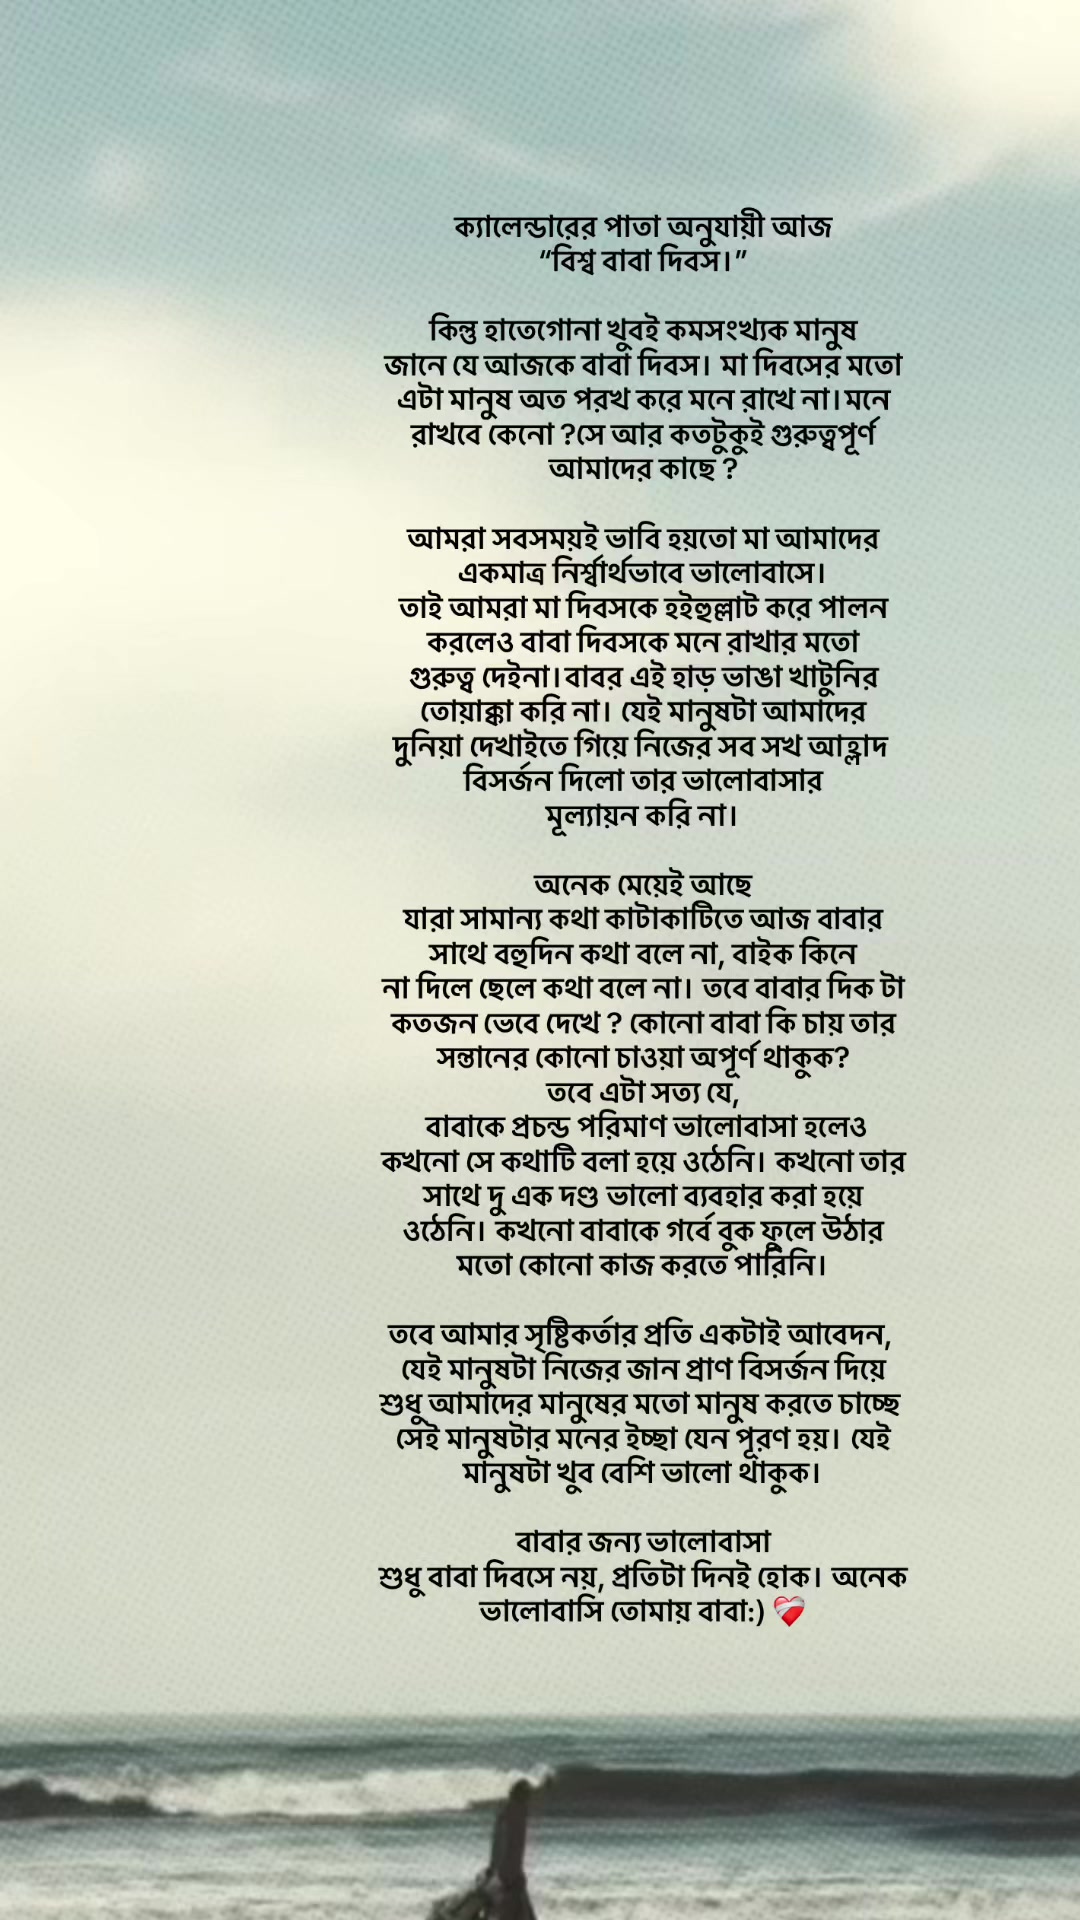 ক্যালেন্ডারের পাতা অনুযায়ী আজ
“বিশ্ব বাবা দিবস।”
কিন্তু হাতেগোনা খুবই কমসংখ্যক মানুষ
জানে যে আজকে বাবা দিবস। মা দিবসের মতো
এটা মানুষ অত পরখ করে মনে রাখে না।মনে
রাখবে কেনো ?সে আর কতটুকুই গুরুত্বপূর্ণ
আমাদের কাছে ?
আমরা সবসময়ই ভাবি হয়তো মা আমাদের
একমাত্র নির্শ্বার্থভাবে ভালোবাসে।
তাই আমরা মা দিবসকে হইহুল্লাট করে পালন
করলেও বাবা দিবসকে মনে রাখার মতো
গুরুত্ব দেইনা।বাবর এই হাড় ভাঙা খাটুনির
তোয়াক্কা করি না। যেই মানুষটা আমাদের
দুনিয়া দেখাইতে গিয়ে নিজের সব সখ আহ্লাদ
বিসর্জন দিলো তার ভালোবাসার
মূল্যায়ন করি না।
অনেক মেয়েই আছে
যারা সামান্য কথা কাটাকাটিতে আজ বাবার
সাথে বহুদিন কথা বলে না, বাইক কিনে
না দিলে ছেলে কথা বলে না। তবে বাবার দিক টা
কতজন ভেবে দেখে ? কোনো বাবা কি চায় তার
সন্তানের কোনো চাওয়া অপূর্ণ থাকুক?
তবে এটা সত্য যে,
বাবাকে প্রচন্ড পরিমাণ ভালোবাসা হলেও
কখনো সে কথাটি বলা হয়ে ওঠেনি। কখনো তার
সাথে দু এক দণ্ড ভালো ব্যবহার করা হয়ে
ওঠেনি। কখনো বাবাকে গর্বে বুক ফুলে উঠার
মতো কোনো কাজ করতে পারিনি।
তবে আমার সৃষ্টিকর্তার প্রতি একটাই আবেদন,
যেই মানুষটা নিজের জান প্রাণ বিসর্জন দিয়ে
শুধু আমাদের মানুষের মতো মানুষ করতে চাচ্ছে
সেই মানুষটার মনের ইচ্ছা যেন পূরণ হয়। যেই
মানুষটা খুব বেশি ভালো থাকুক।
বাবার জন্য ভালোবাসা
শুধু বাবা দিবসে নয়, প্রতিটা দিনই হোক। অনেক
ভালোবাসি তোমায় বাবা:) ❤️‍🩹